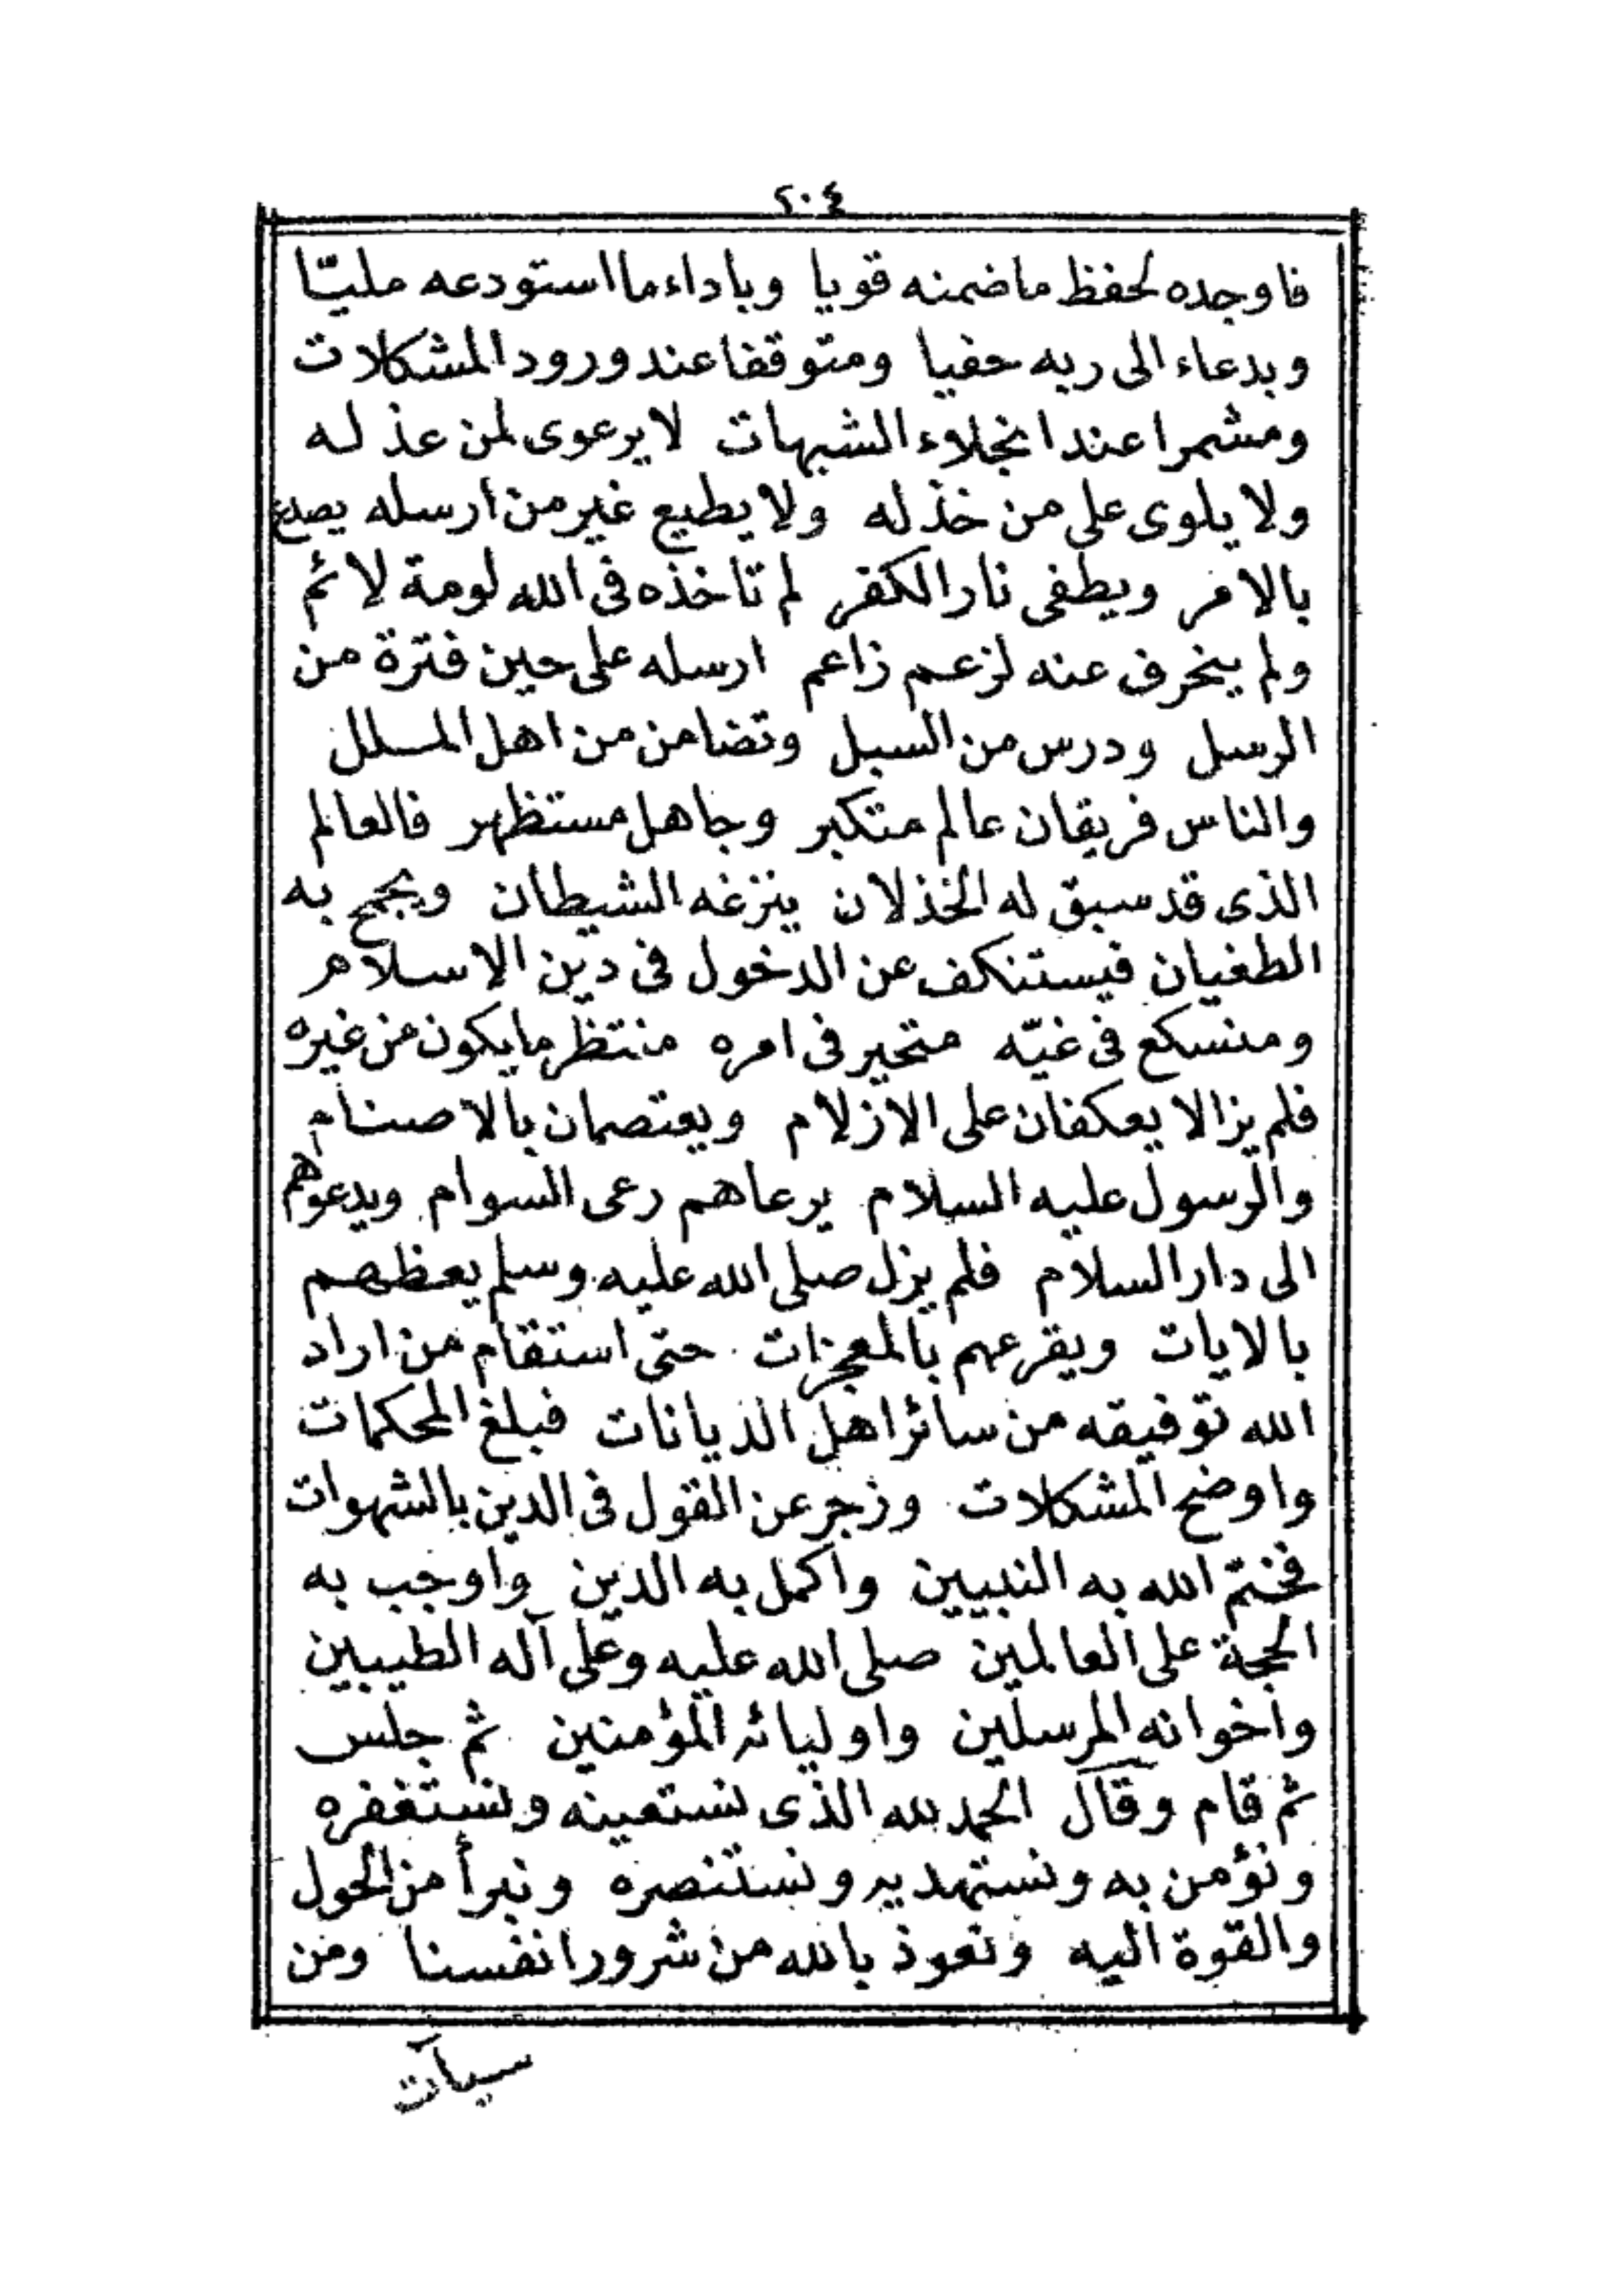 ٢٠٤
فاوجده لحفظ ما ضمنه قويا وباداء ما استودعه مليّا
وبدعاء الى ربه حفيا ومتوقفا عند ورود المشكلات
ومشمرا عند انجلاء الشبهات لا يرعوى لمن عذله
ولا يلوى على من خذله ولا يطيع غير من ارسله يصدع
بالامر ويطفى نار الكفر لم تاخذه فى الله لومة لائم
ولم ينحرف عنه لزعم زاعم ارسله على حين فترة من
الرسل ودرس من السبل وتضامن من اهل الملل
والناس فريقان عالم متكبر وجاهل مستظهر فالعالم
الذى قد سبق له الخذلان ينزغه الشيطان ويجمح به
الطغيان فيستنكف عن الدخول فى دين الاسلام
ومنسكع فى غيّه متحير فى امره منتظر ما يكون من غيره
فلم يزالا يعكفان على الازلام ويعتصمان بالاصنام
والرسول عليه السلام يرعاهم رعى السوام ويدعوهم
الى دار السلام فلم يزل صلى الله عليه وسلم يعظهم
بالايات ويقرعهم بالمعجزات حتى استقام من اراد
الله توفيقه من سائر اهل الديانات فبلغ المحكمات
واوضح المشكلات وزجر عن القول فى الدين بالشهوات
فختم الله به النبيين واكمل به الدين واوجب به
الحجة على العالمين صلى الله عليه وعلى آله الطيبين
واخوانه المرسلين واوليائه المؤمنين ثم جلس
ثم قام وقال الحمد لله الذى نستعينه ونستغفره
ونؤمن به ونستهديه ونستنصره ونبرأ من الحول
والقوة اليه ونعوذ بالله من شرور انفسنا ومن
سيآت